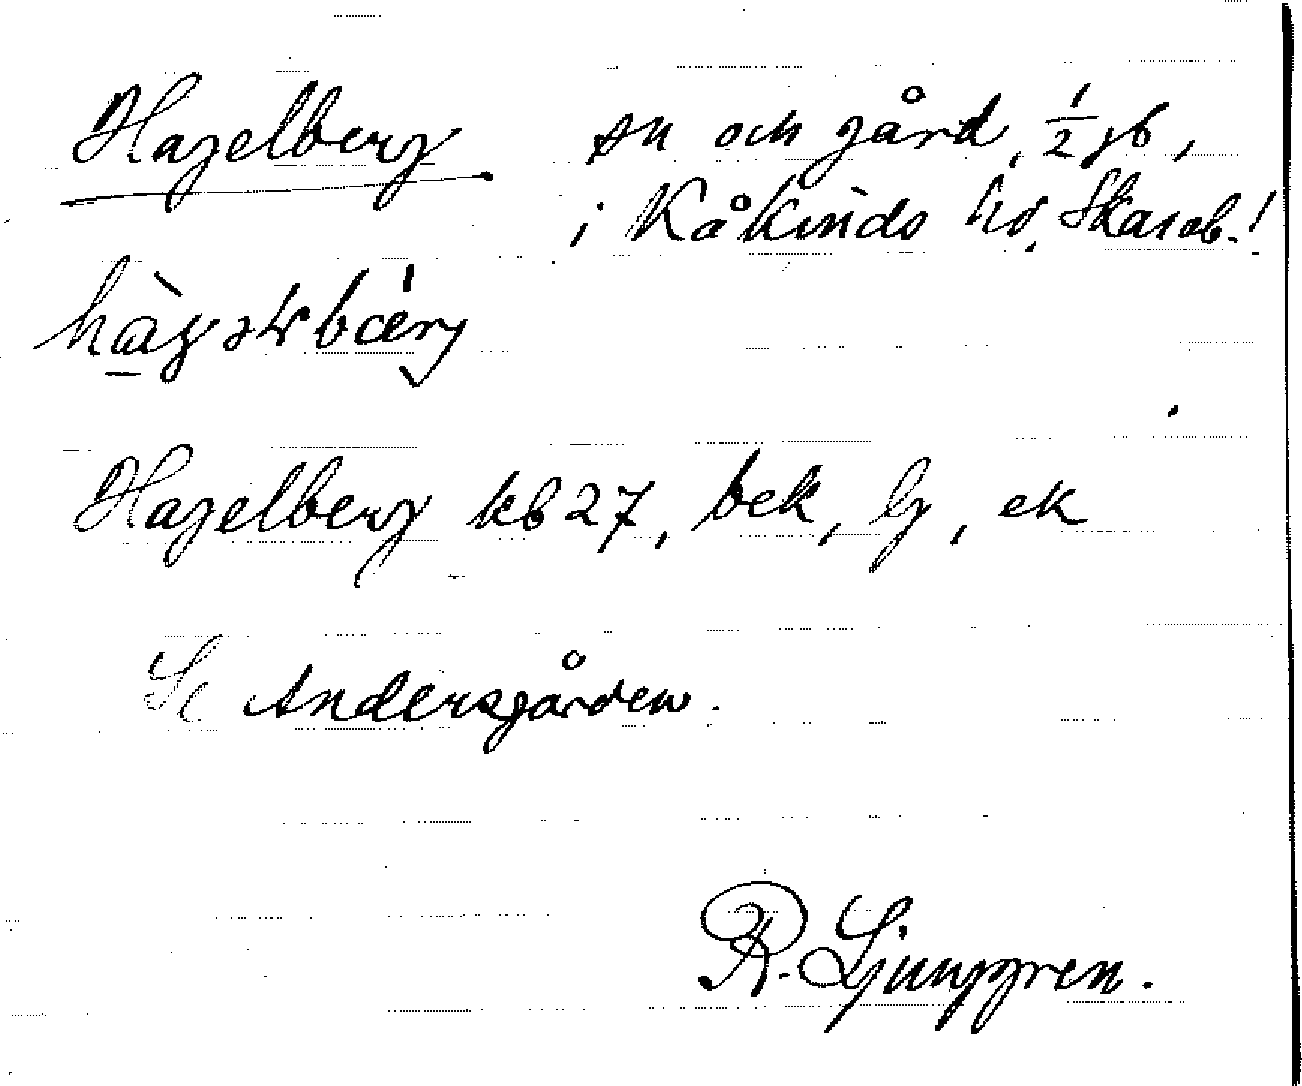 Hagelberg sn och gård, 1/2 gb,
i Kåkinds hd, Skarab.!
Hagelberg kb 27, bek, lg, ek
Se Andersgården.
R. Ljunggren.